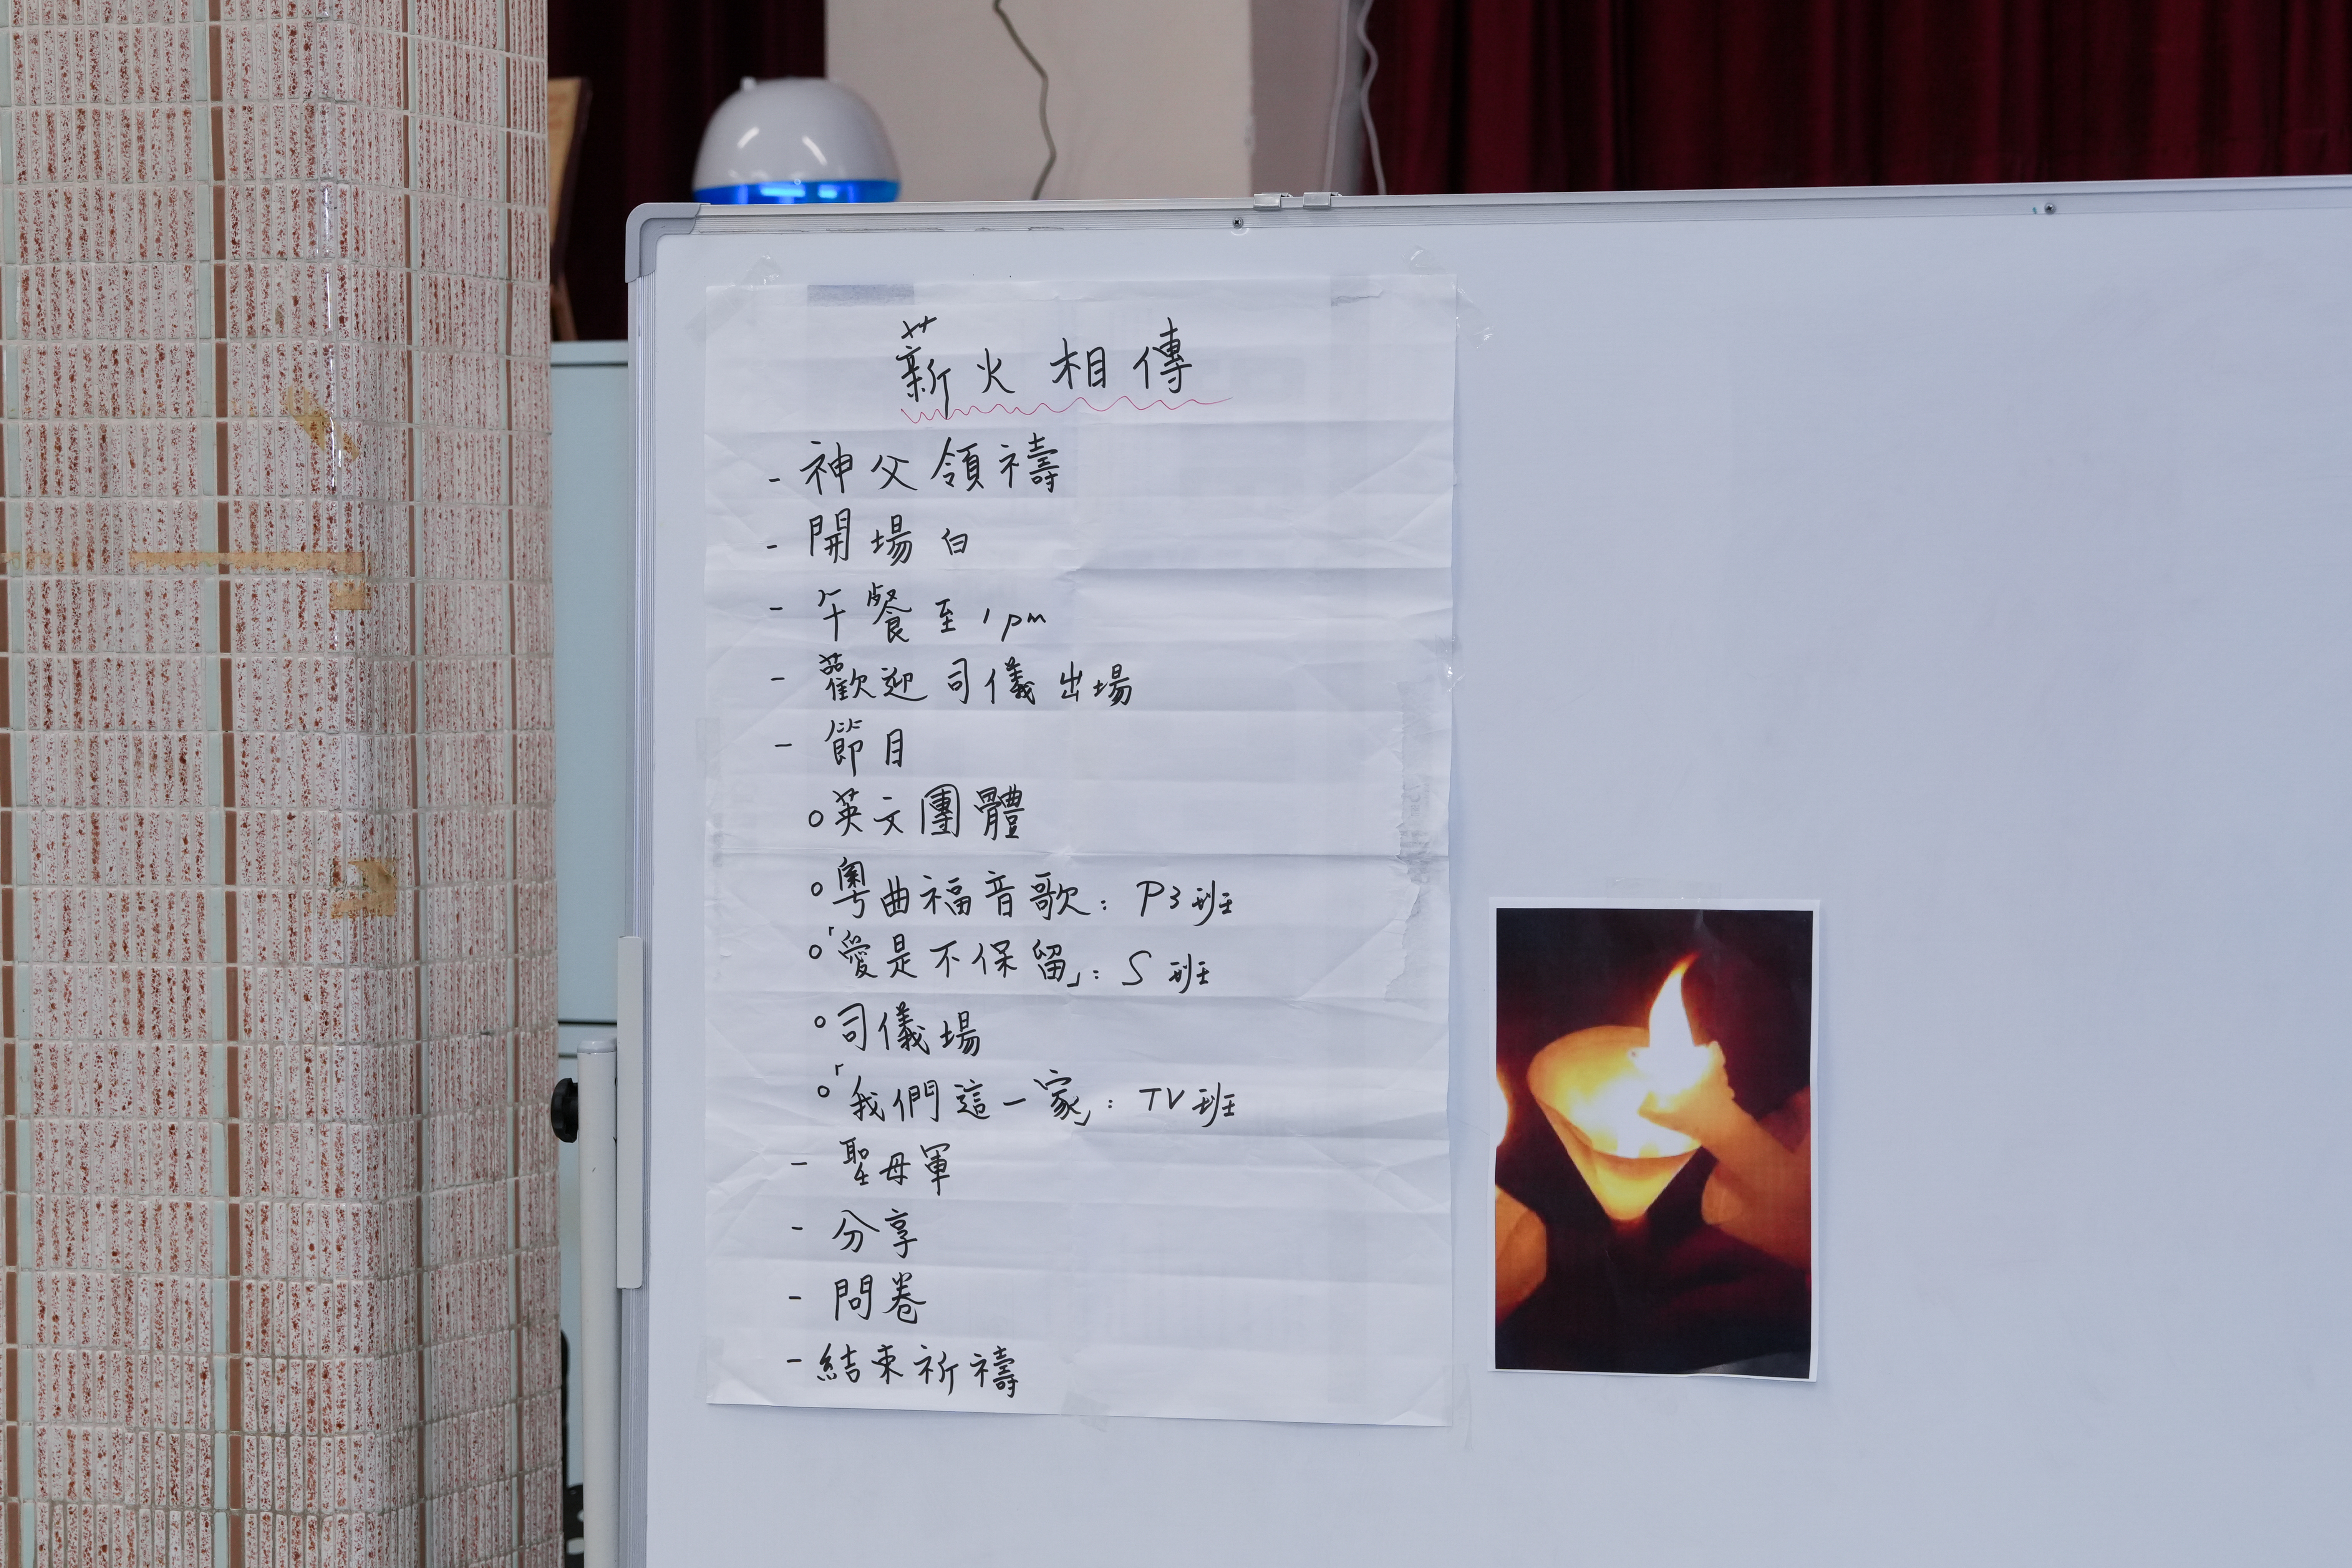 薪火相傳
- 神父領禱
- 開場白
- 午餐至1pm
- 歡迎司儀出場
- 節目
○英文團體
○粵曲福音歌：P3班
○「愛是不保留」：S班
○司儀場
○「我們這一家」：TV班
- 聖母軍
- 分享
- 問卷
- 結束祈禱